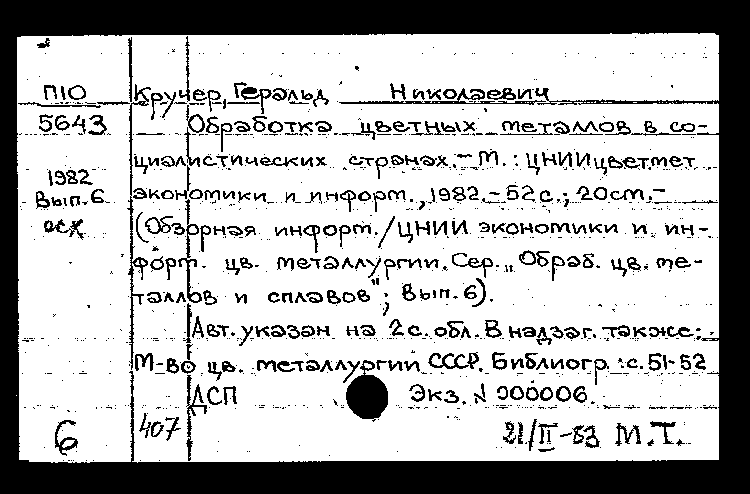 П10 Кручер, Геральд Николаевич
5643 Обработка цветных металлов в со-
циалистических странах. - М.: ЦНИИцветмет
1982 экономики и информ., 1982. - 52 с.; 20 см. -
Вып. 6
осх (Обзорная информ. / ЦНИИ экономики и ин-
форм. цв. металлургии. Сер. „Обраб. цв. ме-
таллов и сплавов"; Вып. 6).
Авт. указан на 2 с. обл. В надзаг. также:
М-во цв. металлургии СССР. Библиогр.: с. 51-52
ДСП Экз. N 000006.
6 407 21/II-83 М.Т.